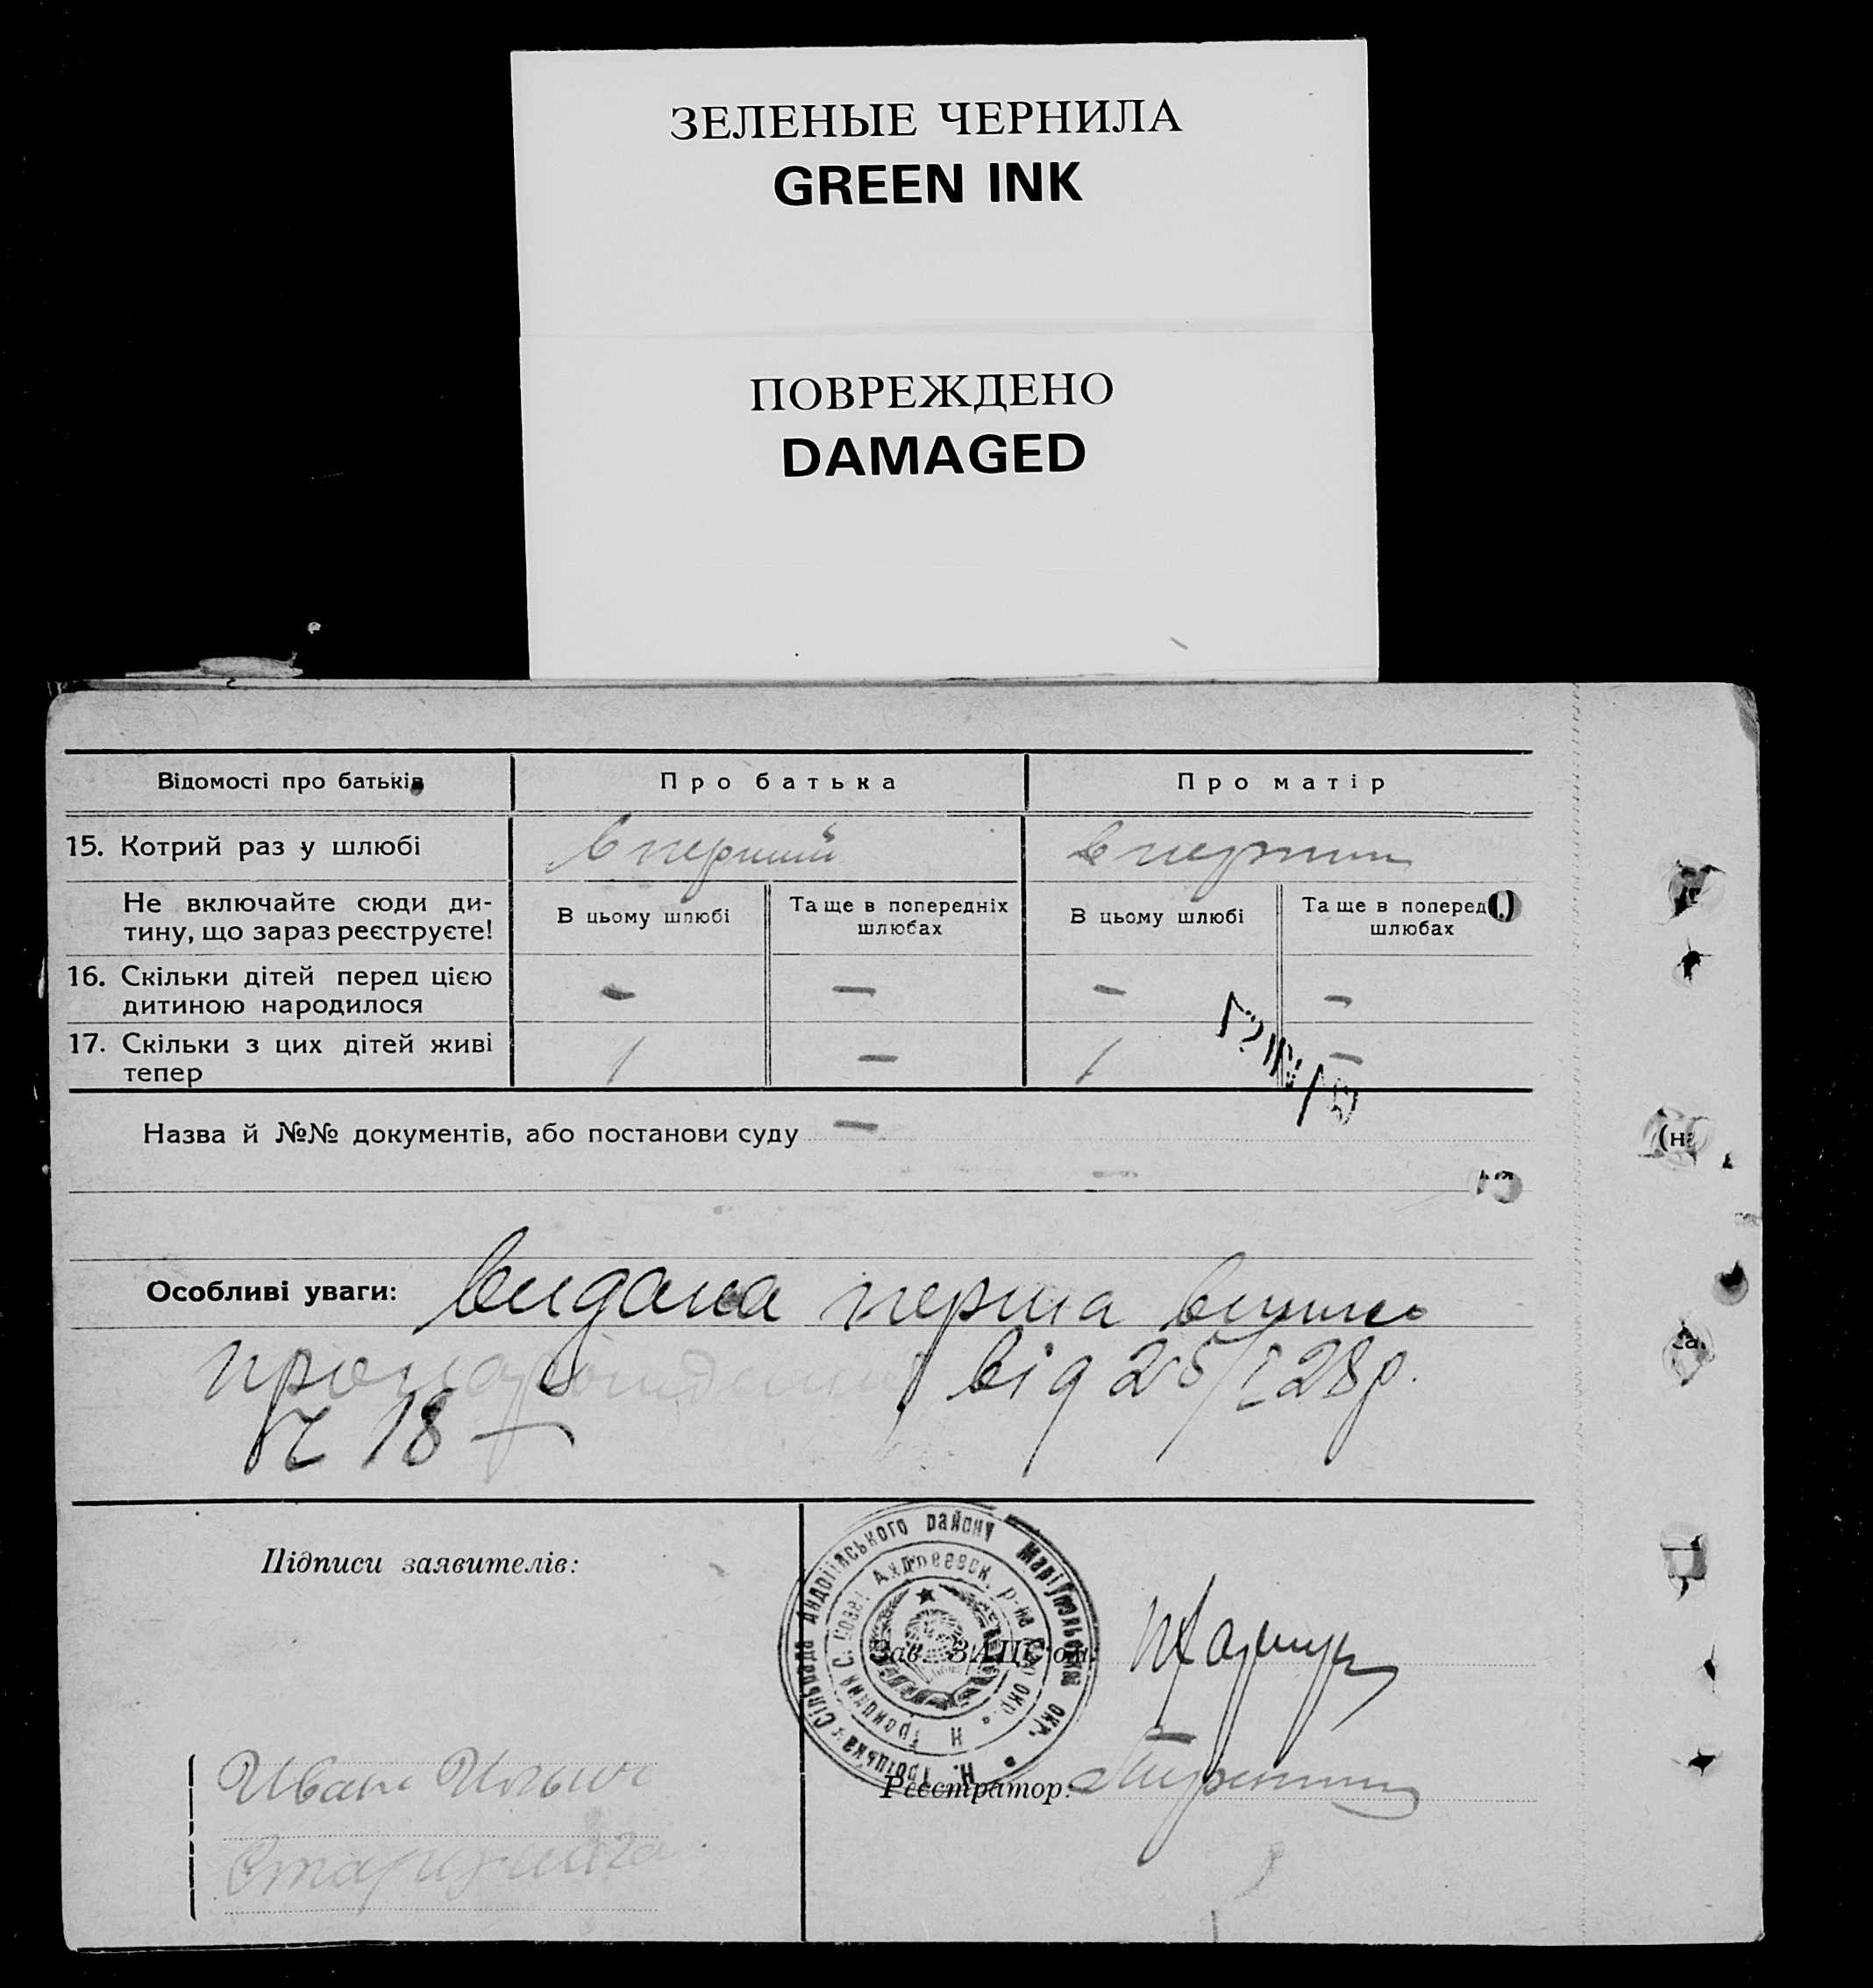 ЗЕЛЕНЫЕ ЧЕРНИЛА
GREEN INK
ПОВРЕЖДЕНО
DAMAGED
Відомості про батьків Про батька Про матір
15. Котрий раз у шлюбі в перший в перший
Не включайте сюди ди-
тину, що зараз реєструєте!
В цьому шлюбі
Та ще в попередніх
шлюбах
В цьому шлюбі
Та ще в поперед
шлюбах
16. Скільки дітей перед цією
дитиною народилося
— — — —
17. Скільки з цих дітей живі
тепер
/ — / —
Назва й №№ документів, або постанови суду —
Особливі уваги: видана перша
від 25/I 28р.
№ 18 —
Підписи заявителів:
Зав. ЗАЦС'ом:
Реєстратор:
Иван
району
окр.
р-на
(на